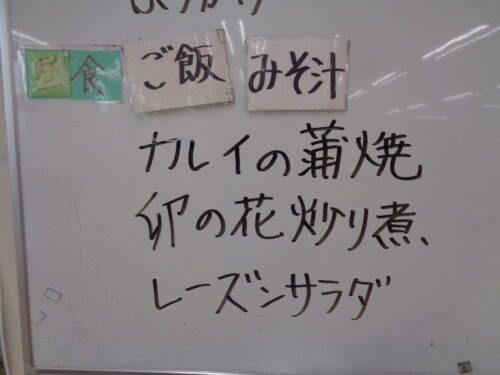 昼食 ご飯 みそ汁
ナルイの蒲焼
卯の花炒り煮、
レーズンサラダ